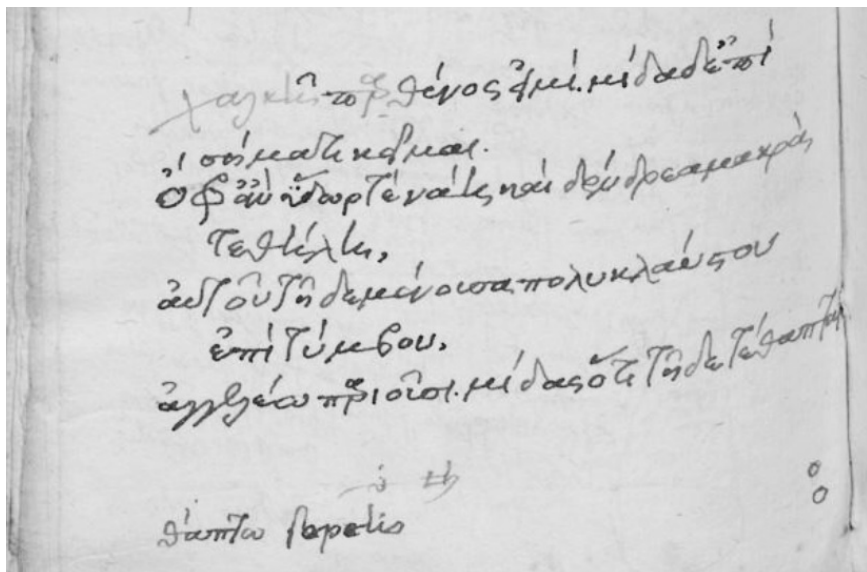 χαλκῆ παρθένος εἰμὶ. μίδα δ' ἐπὶ
σήματι κεῖμαι.
ὄφρ' ἂν ὕδωρ τε νάῃ καὶ δένδρεα μακρὰ
τεθήλῃ,
αὐτοῦ τῇδε μένουσα πολυκλαύτου
ἐπὶ τύμβου,
ἀγγελέω παριοῦσι. μίδας ὅτι τῇδε τέθαπται
θάπτω